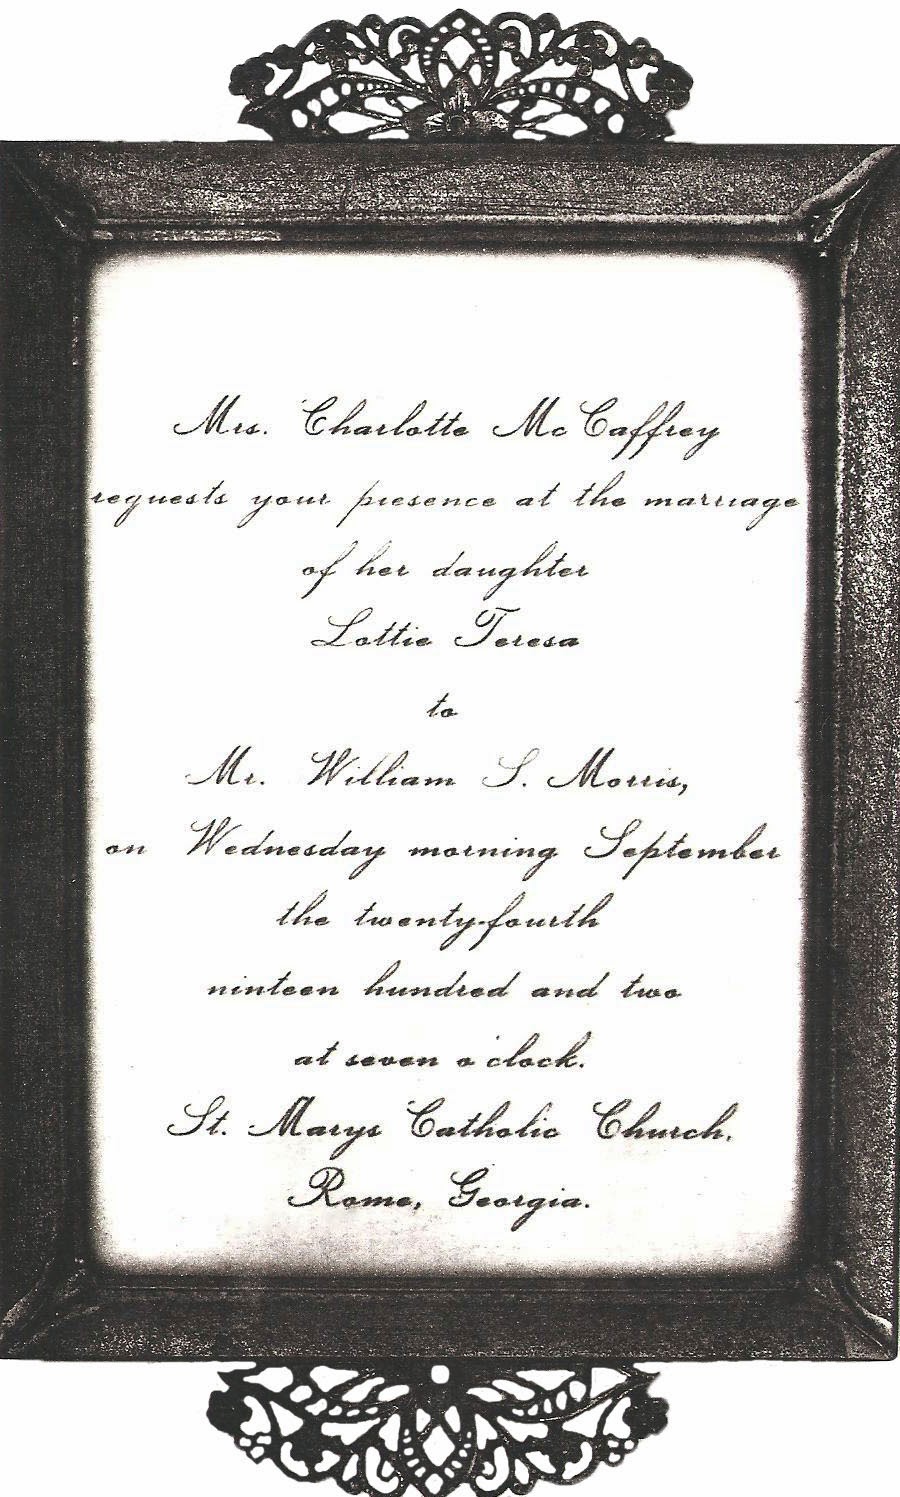 Mrs. Charlotte McCaffrey
requests your presence at the marriage
of her daughter
Lottie Teresa
to
Mr. William S. Morris,
on Wednesday morning September
the twenty-fourth
ninteen hundred and two
at seven o'clock.
St. Marys Catholic Church,
Rome, Georgia.